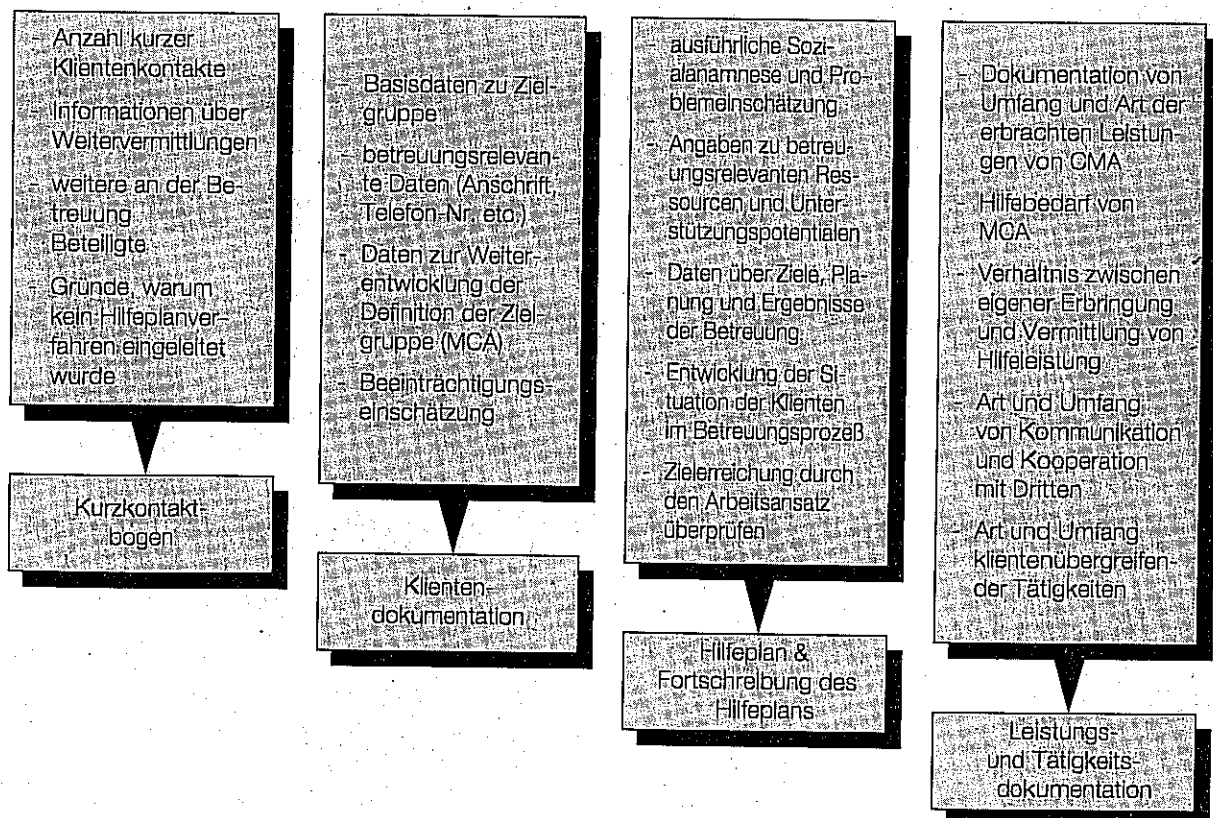 - Anzahl kurzer
Klientenkontakte
- Informationen über
Weitervermittlungen
- weitere an der Be-
treuung
Beteiligte
- Gründe, warum
kein Hilfeplanver-
fahren eingeleitet
wurde
Kurzkontakt-
bogen
- Basisdaten zu Ziel-
gruppe
- betreuungsrelevan-
te Daten (Anschrift,
Telefon-Nr. etc.)
- Daten zur Weiter-
entwicklung der
Definition der Ziel-
gruppe (MCA)
- Beeinträchtigungs-
einschätzung
Klienten-
dokumentation
- ausführliche Sozi-
alanamnese und Pro-
blemeinschätzung
- Angaben zu betreu-
ungsrelevanten Res-
sourcen und Unter-
stützungspotentialen
- Daten über Ziele, Pla-
nung und Ergebnisse
der Betreuung
- Entwicklung der Si-
tuation der Klienten
im Betreuungsprozeß
- Zielerreichung durch
den Arbeitsansatz
überprüfen
Hilfeplan &
Fortschreibung des
Hilfeplans
- Dokumentation von
Umfang und Art der
erbrachten Leistun-
gen von CMA
- Hilfebedarf von
MCA
- Verhältnis zwischen
eigener Erbringung
und Vermittlung von
Hilfeleistung
- Art und Umfang
von Kommunikation
und Kooperation
mit Dritten
- Art und Umfang
klientenübergreifen-
der Tätigkeiten
Leistungs-
und Tätigkeits-
dokumentation